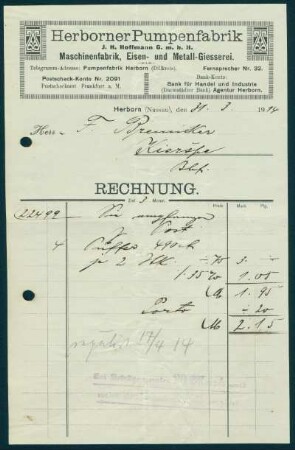 Herborner Pumpenfabrik
J. H. Hoffmann G. m. b. H.
Maschinenfabrik, Eisen- und Metall-Giesserei.
Telegramm-Adresse: Pumpenfabrik Herborn (Dillkreis). Fernsprecher Nr. 32.
Postscheck-Konto Nr. 2091 Bank-Konto:
Postscheckamt Frankfurt a. M. Bank für Handel und Industrie
(Darmstädter Bank) Agentur Herborn.
Herborn (Nassau), den 31. 3. 1914
Herrn F.
Kierspe
Bhf.
RECHNUNG.
Ziel 3 Monat
22499 Sie empfingen
p Post
4
p 2 Mk -.75 3.-
1.35 % 1.05
M 1.95
Porto -.20
M 2.15
17/4 14